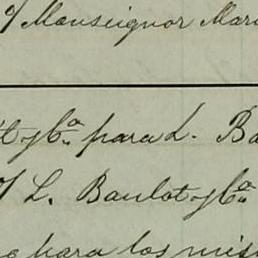 o/ Monseignor Mar
t y Cª para L. Ba
o/ L. Baulot y Cª
para los mis